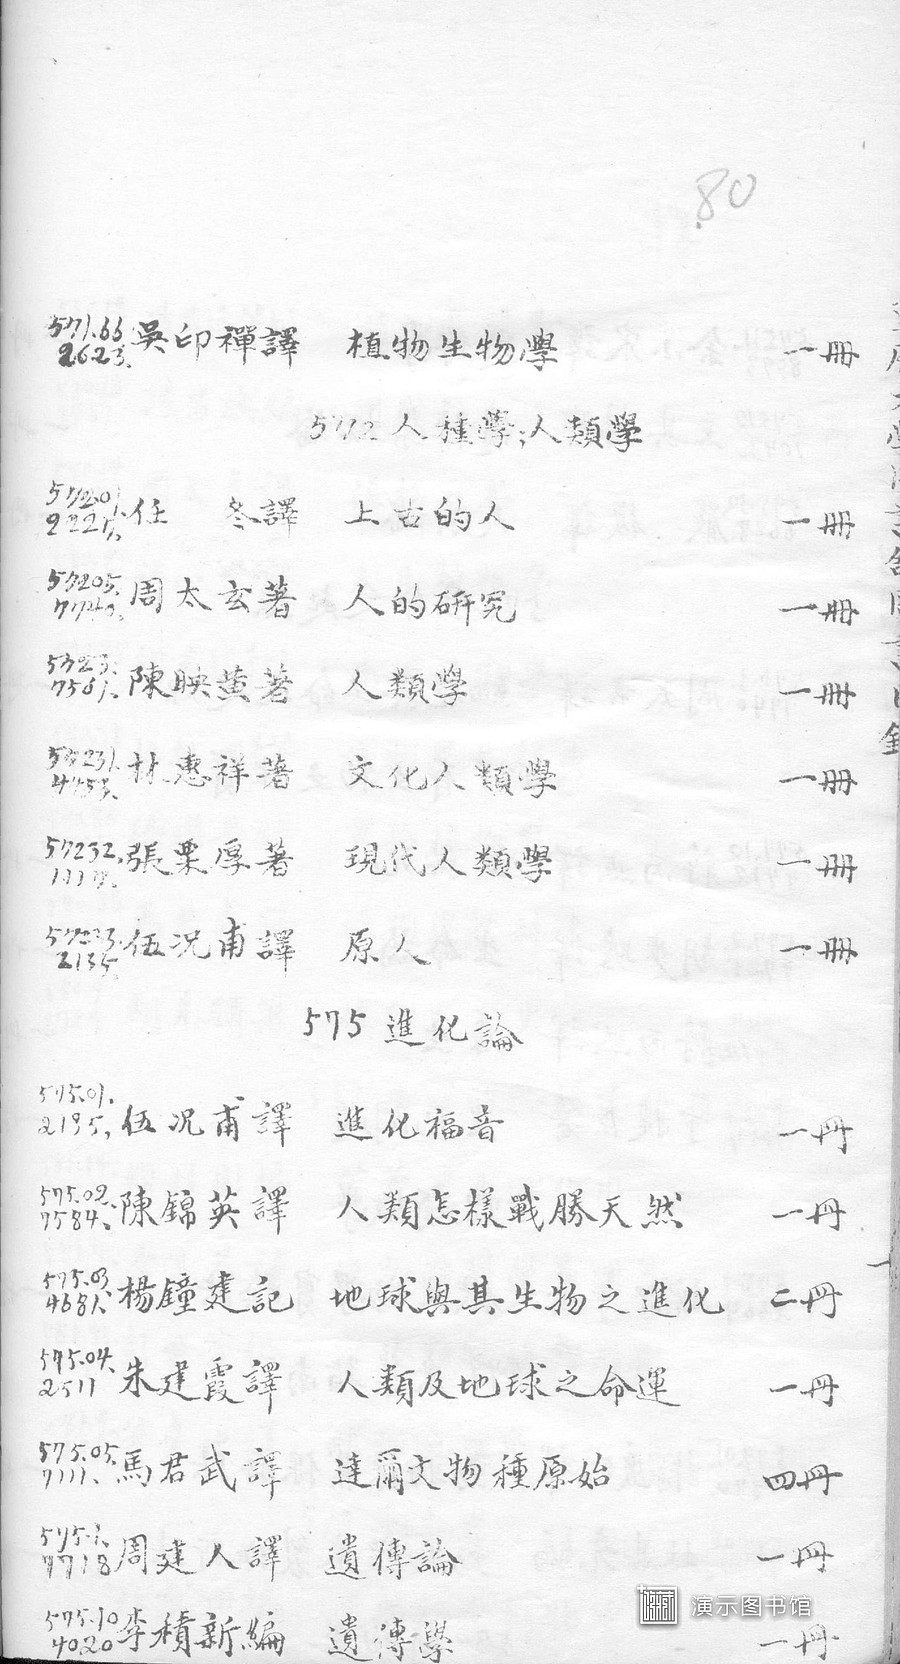 80
571.66 吳印禪譯 植物生物學 一冊
2623.
572 人種學;人類學
572.01. 任 冬譯 上古的人 一冊
2221.
57205. 周太玄著 人的研究 一冊
7740.
陳映黃著 人類學 一冊
57231. 林惠祥著 文化人類學 一冊
4453.
57232. 張栗厚著 現代人類學 一冊
1117.
57233. 伍況甫譯 原人 一冊
2135.
575 進化論
575.01. 伍況甫譯 進化福音 一冊
575.02. 陳錦英譯 人類怎樣戰勝天然 一冊
7584.
575.03 楊鐘建記 地球與其生物之進化 二冊
4681.
575.04. 朱建霞譯 人類及地球之命運 一冊
2511
575.05. 馬君武譯 達爾文物種原始 四冊
7111.
575.1. 周建人譯 遺傳論 一冊
7718
575.10 李積新編 遺傳學 一冊
4020
演示图书馆